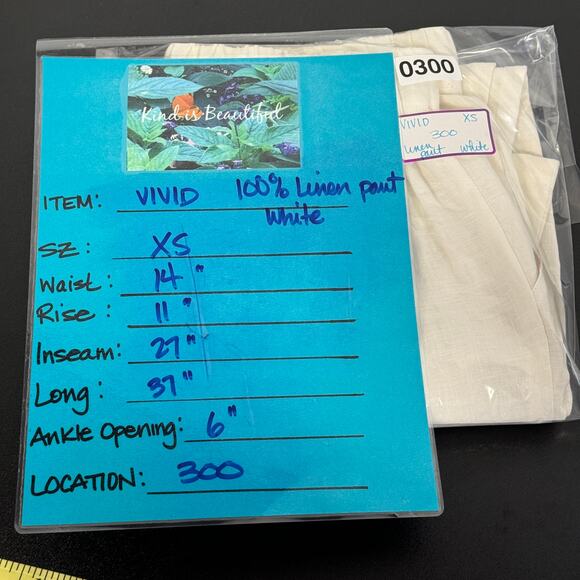 Kind is Beautiful
ITEM: VIVID 100% Linen pant
White
SZ: XS
Waist: 14"
Rise: 11"
Inseam: 27"
Long: 37"
Ankle Opening: 6"
LOCATION: 300
0300
VIVID XS
300
Linen
pant white